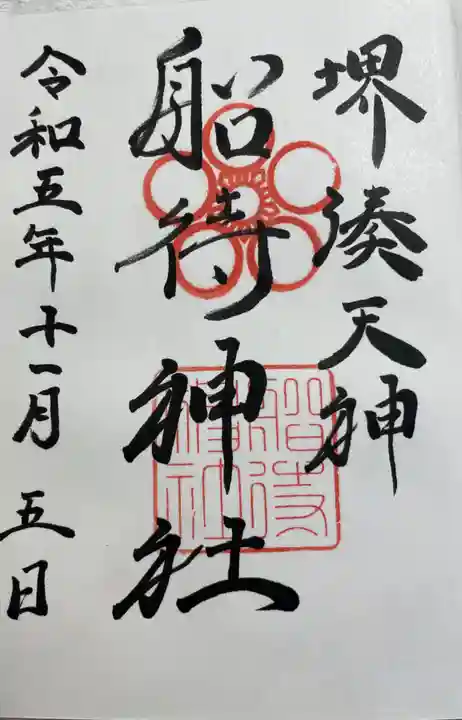 堺湊天神
船待神社
令和五年十一月 五日